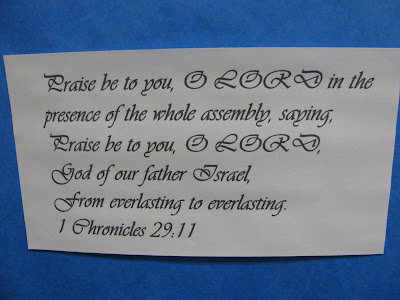 Praise be to you, O LORD in the
presence of the whole assembly, saying,
Praise be to you, O LORD,
God of our father Israel,
From everlasting to everlasting.
1 Chronicles 29:11